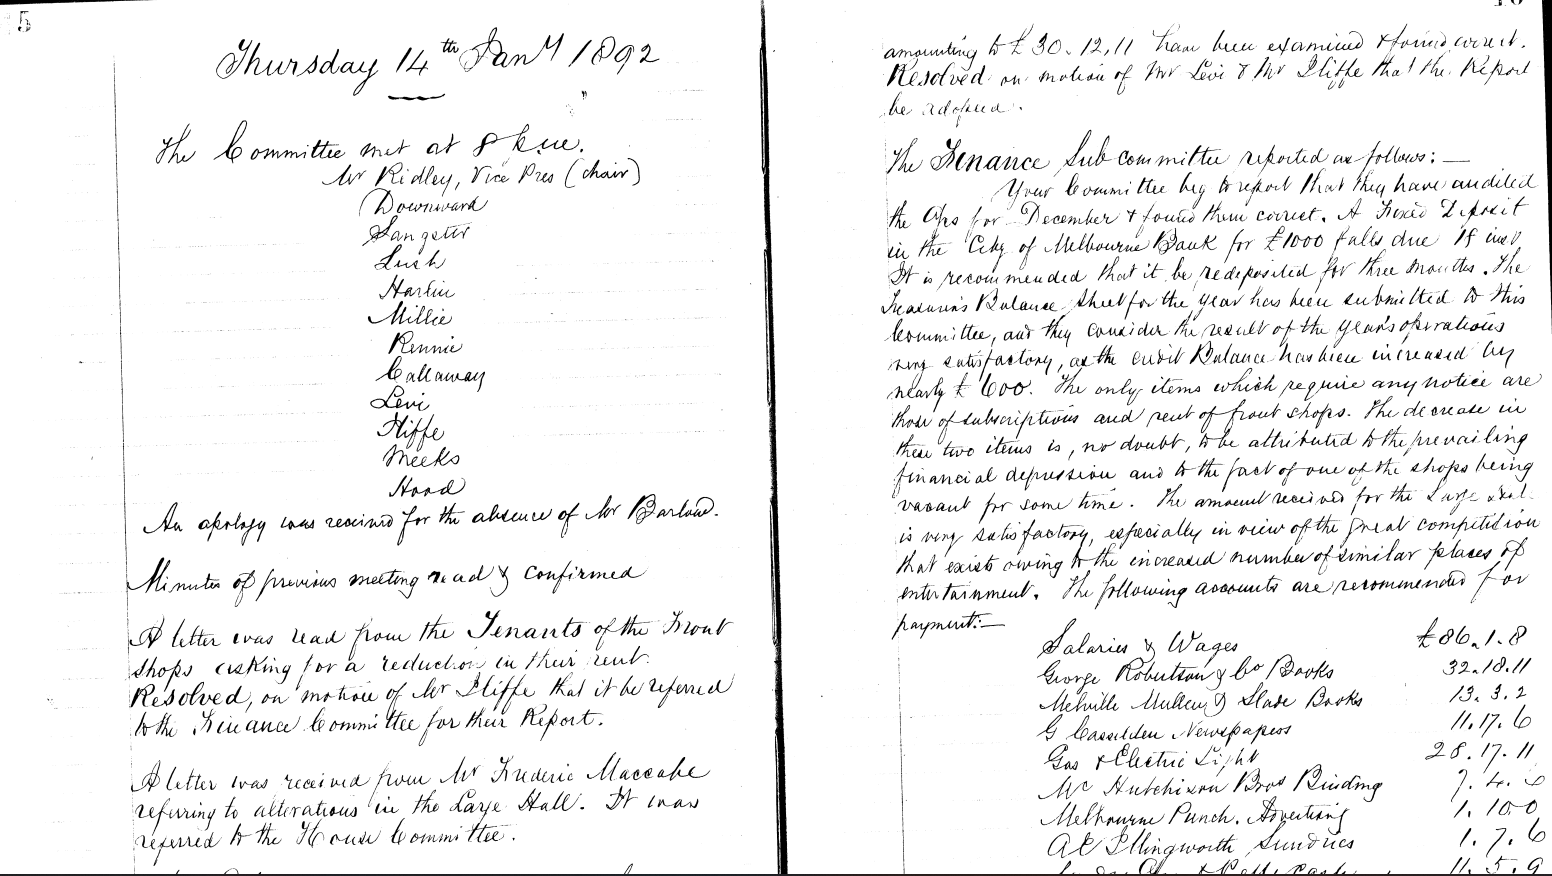 5
Thursday 14th Jany 1892
The Committee met at 8 p.m.
Mr Ridley, Vice Pres (chair)
Downward
Sangster
Lush
Harlin
Millie
Rennie
Callaway
Levi
Iliffe
Meeks
Hood
An apology was received for the absence of Mr
Minutes of previous meeting read & confirmed
A letter was read from the Tenants of the Front
shops asking for a reduction in their rent.
Resolved, on motion of Mr Iliffe that it be referred
to the Finance Committee for their Report.
A letter was received from Mr Frederic Maccabe
referring to alterations in the Large Hall. It was
referred to the House Committee.
amounting to £30.12.11 have been examined & found correct.
Resolved on motion of Mr Levi & Mr Iliffe that the Report
be adopted.
The Finance Sub committee reported as follows:—
Your Committee beg to report that they have audited
the a/cs for December & found them correct. A Fixed Deposit
in the City of Melbourne Bank for £1000 falls due inst
It is recommended that it be redeposited for three months. The
Treasurer's Balance Sheet for the year has been submitted to this
Committee, and they consider the result of the year's operations
very satisfactory, as the credit Balance has been increased by
nearly £600. The only items which require any notice are
those of subscriptions and rent of front shops. The decrease in
these two items is, no doubt, to be attributed to the prevailing
financial depression and to the fact of one of the shops being
vacant for some time. The amount received for the Large Hall
is very satisfactory, especially in view of the great competition
that exists owing to the increased number of similar places of
entertainment. The following accounts are recommended for
payment:—
Salaries & Wages £86.1.8
George Robertson & Co Books 32.18.11
Melville Mullen & Slade Books 13.3.2
G Newspapers 11.17.6
Gas & Electric Light 28.17.11
Mc Hutchison Bros Binding 7.4.6
Melbourne Punch. Advertising 1.10.0
A E Illingworth Sundries 1.7.6
11.5.9